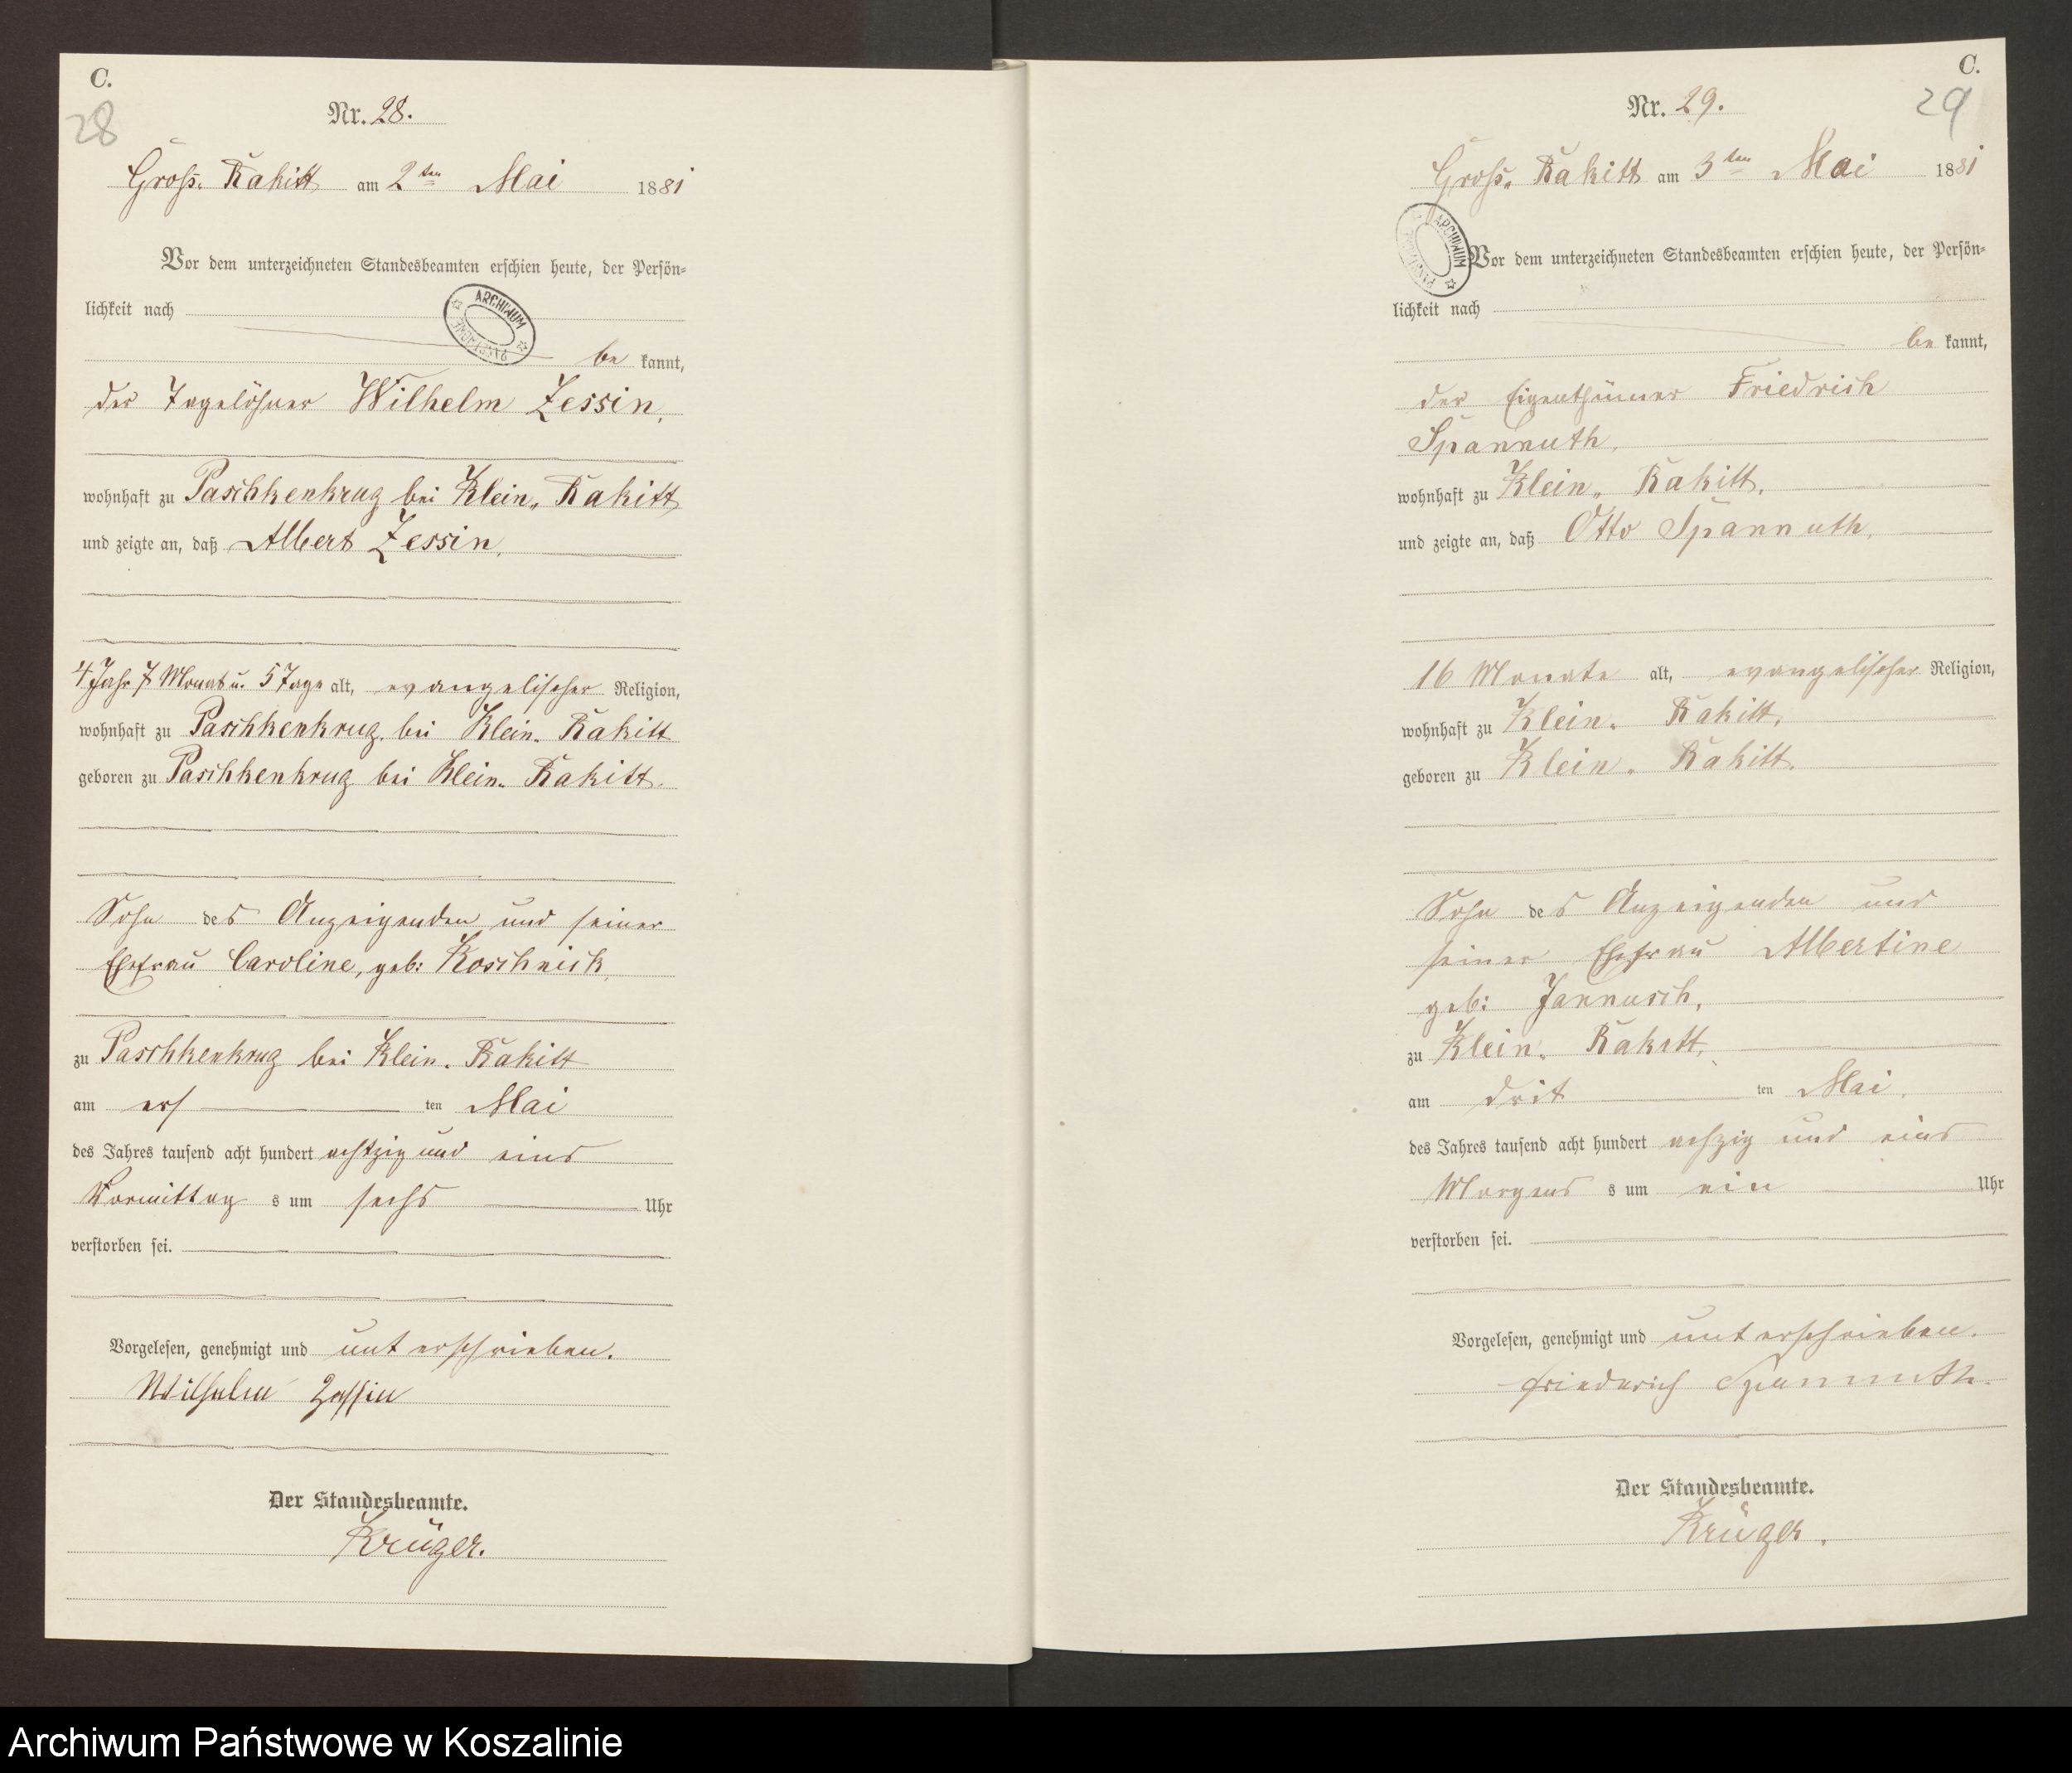 C.
28
Nr. 28.
Groß. Rakitt am 2ten Mai 1881
Vor dem unterzeichneten Standesbeamten erschien heute, der Persön-
lichkeit nach
ARCHIWUM PAŃSTWOWE
be kannt,
der Tagelöhner Wilhelm Zessin,
wohnhaft zu Paschkenkrug bei Klein. Rakitt
und zeigte an, daß Albert Zessin,
4 Jahr 7 Monat u. 5 Tage alt, evangelischer Religion,
wohnhaft zu Paschkenkrug bei Klein. Rakitt
geboren zu Paschkenkrug bei Klein. Rakitt.
Sohn des Anzeigenden und seiner
Ehefrau Caroline, geb: Koschnick,
zu Paschkenkrug bei Klein. Rakitt
am ers ten Mai
des Jahres tausend acht hundert achtzig und eins
Vormittag s um sechs Uhr
verstorben sei.
Vorgelesen, genehmigt und unterschrieben.
Wilhelm Zessin
Der Standesbeamte.
Krüger.
C.
29
Nr. 29.
Groß. Rakitt am 3ten Mai 1881
ARCHIWUM PAŃSTWOWE
Vor dem unterzeichneten Standesbeamten erschien heute, der Persön-
lichkeit nach
be kannt,
der Eigenthümer Friedrich
Spannuth,
wohnhaft zu Klein. Rakitt,
und zeigte an, daß Otto Spannuth,
16 Monate alt, evangelischer Religion,
wohnhaft zu Klein. Rakitt,
geboren zu Klein. Rakitt.
Sohn des Anzeigenden und
seiner Ehefrau Albertine
geb: Jannusch,
zu Klein. Rakitt,
am drit ten Mai.
des Jahres tausend acht hundert achzig und eins
Morgens s um ein Uhr
verstorben sei.
Vorgelesen, genehmigt und unterschrieben.
Friederich Spannuth.
Der Standesbeamte.
Krüger.
Archiwum Państwowe w Koszalinie